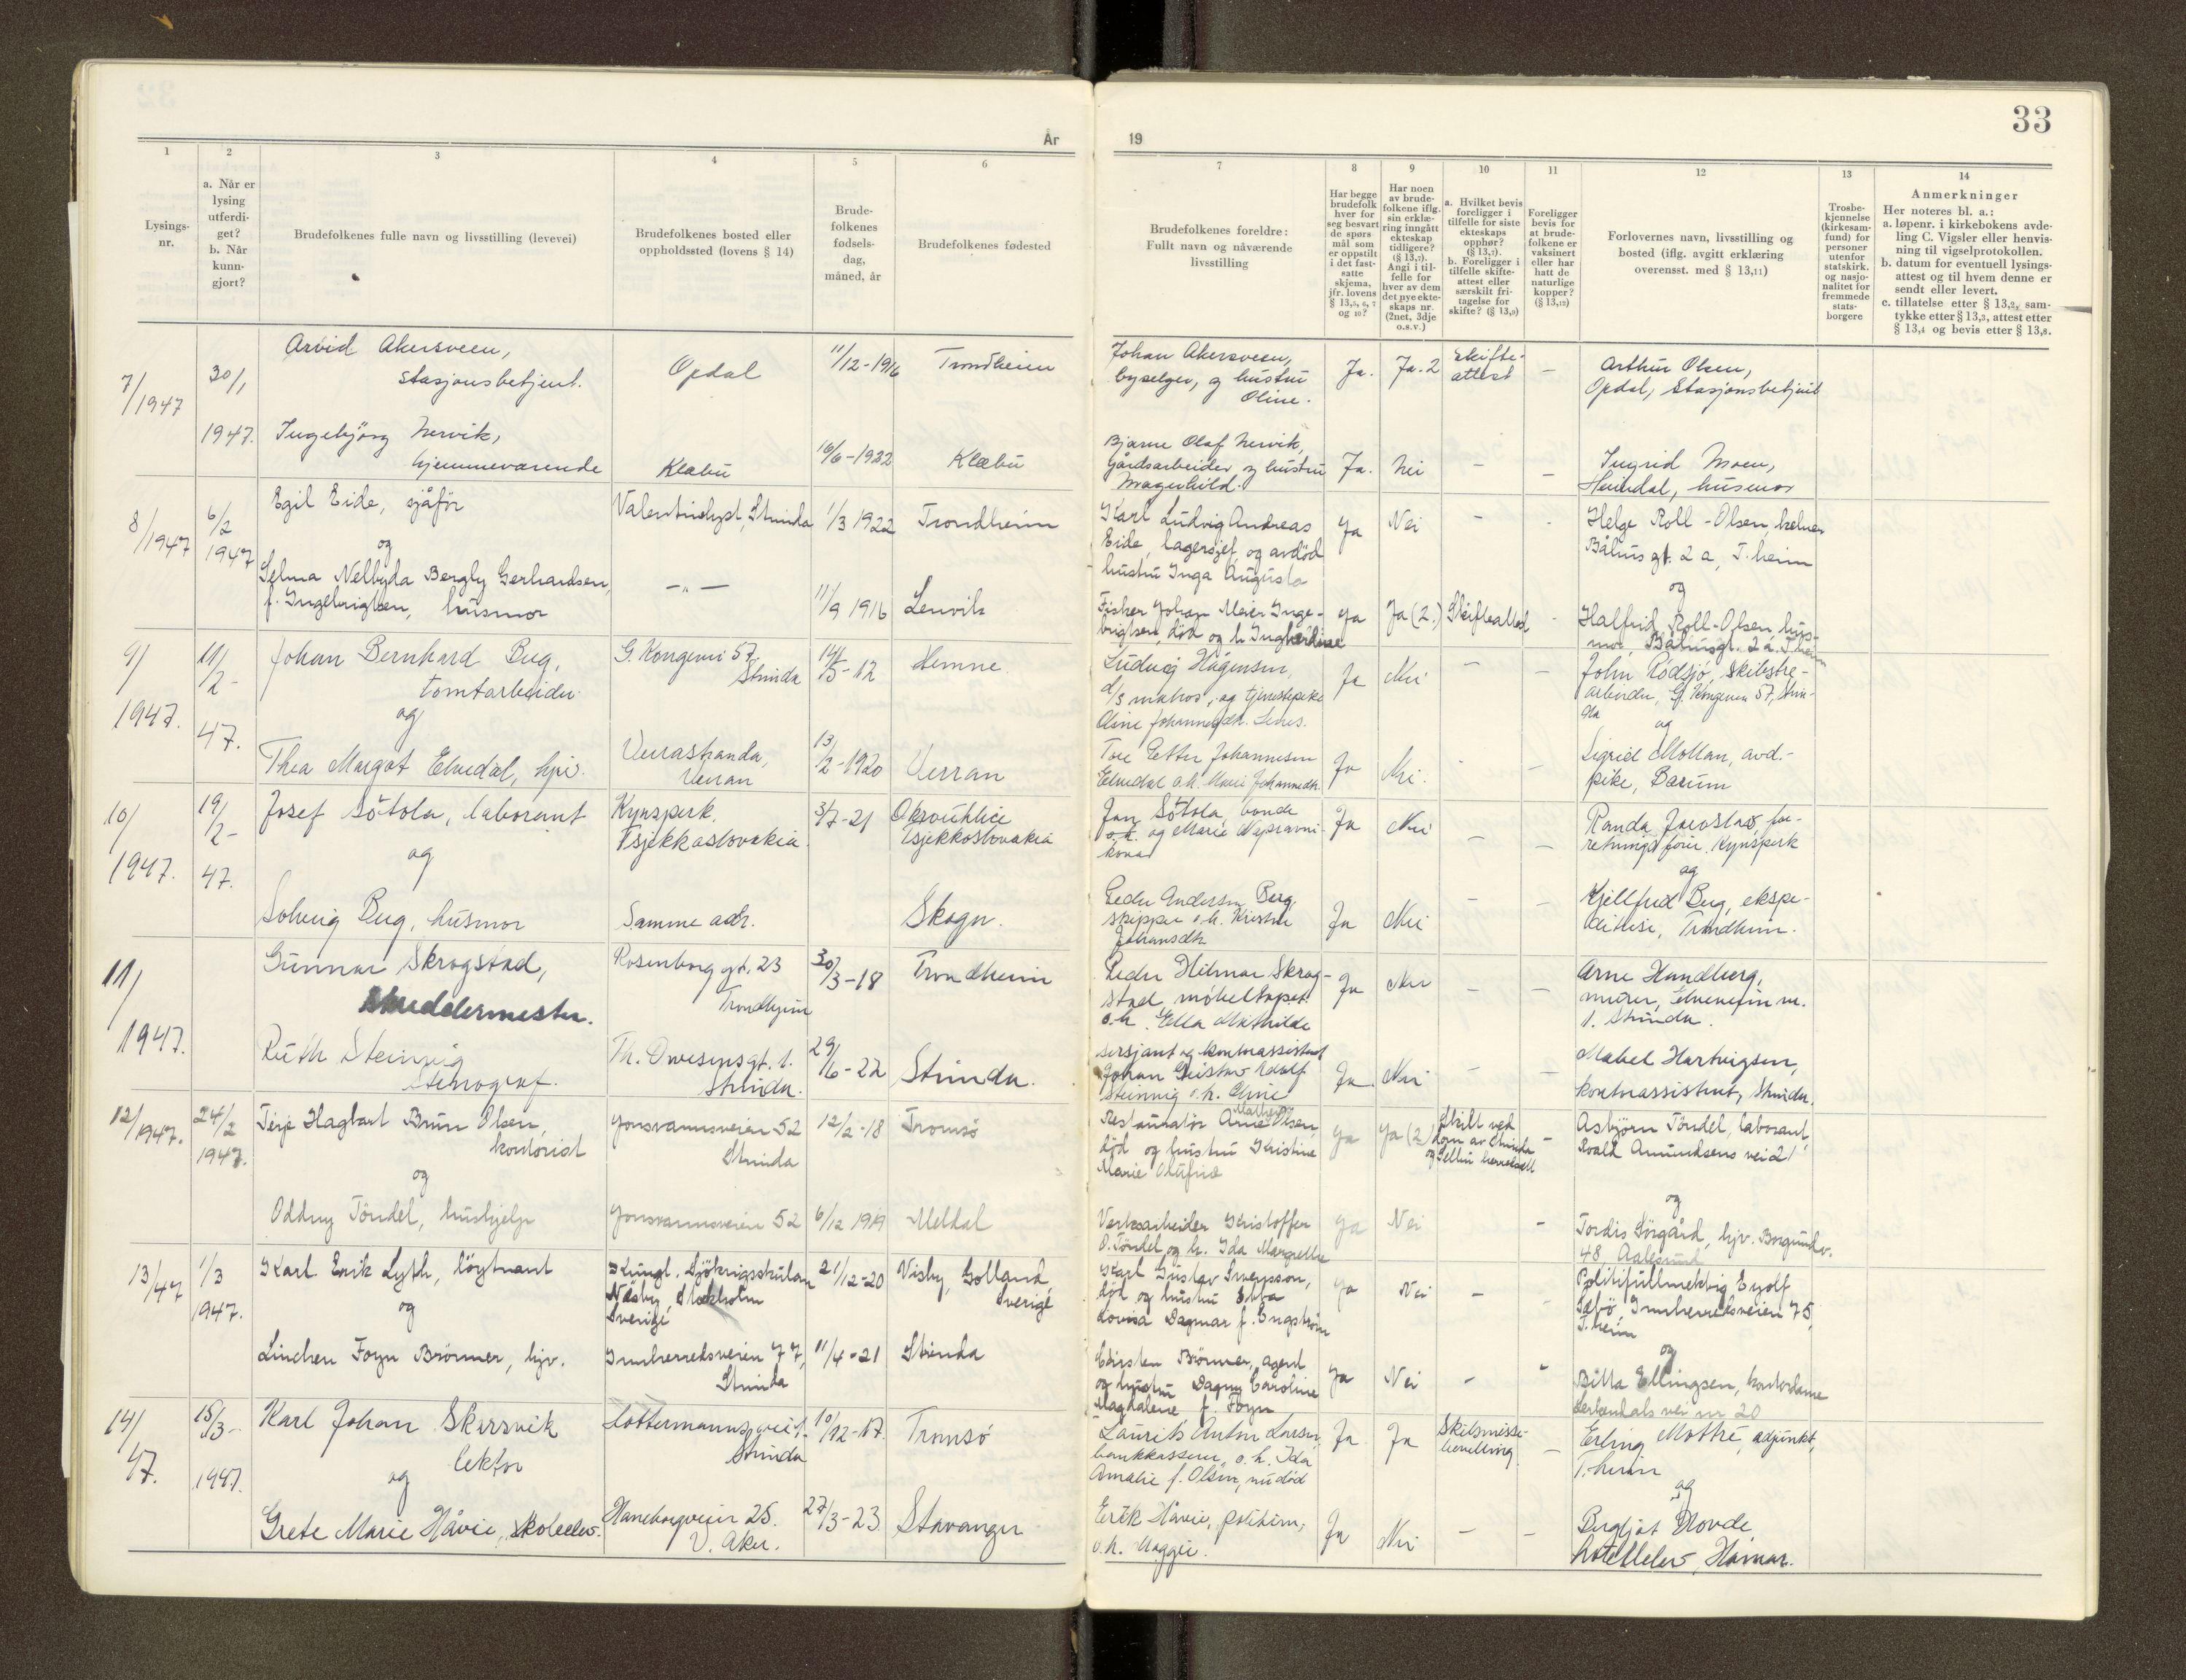 33
År
19
1
2
3
4
5
6
7
8
9
10
11
12
13
14
Lysings-
nr.
a. Når er
lysing
utferdi-
get?
b. Når
kunn-
gjort?
Brudefolkenes fulle navn og livsstilling (levevei)
Brudefolkenes bosted eller
oppholdssted (lovens § 14)
Brude-
folkenes
fødsels-
dag,
måned, år
Brudefolkenes fødested
Brudefolkenes foreldre:
Fullt navn og nåværende
livsstilling
Har begge
brudefolk
hver for
seg besvart
de spørs
mål som
er oppstilt
i det fast-
satte
skjema,
jfr. lovens
§ 13,5, 6, 7
og 10?
Har noen
av brude-
folkene iflg.
sin erklæ-
ring inngått
ekteskap
tidligere?
(§ 13,7).
Angi i til-
felle for
hver av dem
det nye ekte-
skaps nr.
(2net, 3dje
o.s.v.)
a. Hvilket bevis
foreligger i
tilfelle for siste
ekteskaps
opphør?
(§ 13,7).
b. Foreligger i
tilfelle skifte-
attest eller
særskilt fri-
tagelse for
skifte? (§ 13,9)
Foreligger
bevis for
at brude-
folkene er
vaksinert
eller har
hatt de
naturlige
kopper?
(§ 13,12)
Forlovernes navn, livsstilling og
bosted (iflg. avgitt erklæring
overensst. med § 13,11)
Trosbe-
kjennelse
(kirkesam-
fund) for
personer
utenfor
statskirk.
og nasjo-
nalitet for
fremmede
stats-
borgere
Anmerkninger
Her noteres bl. a.:
a. løpenr. i kirkebokens avde-
ling C. Vigsler eller henvis-
ning til vigselprotokollen.
b. datum for eventuell lysings-
attest og til hvem denne er
sendt eller levert.
c. tillatelse etter § 13,2, sam-
tykke etter § 13,3, attest etter
§ 13,4 og bevis etter § 13,8.
7/1947
30/1
1947.
Arvid Akersveen,
stasjonsbetjent.
Opdal
11/12-1916
Trondheim
Johan Akersveen,
byselger, og hustru
Oline.
Ja.
Ja. 2
Skifte-
attest
–
Arthur Olsen,
Opdal, Stasjonsbetjent
Ingebjörg Nervik,
hjemmeværende
Klæbu
16/6-1922
Klæbu
Bjarne Olaf Nervik,
gårdsarbeider, og hustru
Magnhild.
Ja.
Nei
–
–
Ingrid Moen,
Heimdal, husmor
8/1947
6/2
1947
Egil Eide, sjåför
og
Valentinlyst, Strinda
1/3 1922
Trondheim
Karl Ludvig Andreas
Eide, lagersjef, og avdöd
hustru Inga Augusta
Ja
Nei
–
-
Helge Roll-Olsen, kelner
Båhusgt. 2 a, T.heim
og
Selma Nelbyda Bergly Gerhardsen,
f. Ingebrigtsen, husmor
–"–
11/9 1916
Lenvik
Fisker Johan Meier Inge-
brigtsen, död og h.
Ja
Ja (2.)
Skifteattest
-
Halfrid Roll-Olsen, hus-
mor, Båhusgt. 2 a. T.heim
9/
1947.
11/2-
47.
Johan Bernhard Berg,
tomtarbeider
og
G. Kongevei 57.
Strinda
14/5-12
Hemne
Ludvig Hågensen,
d/s matros, og tjenestepike
Oline Johannesdtr.
Ja
Nei
–
–
John Rödsjö, skibstre-
arbeider, G. Kongevei 57, Strin-
da
og
Thea Margot Elvedal, hjv.
Verrastranda,
Verran
13/2-1920
Verran
Tore Petter Johannesen
Elvedal o.h. Marie Johannesdtr.
Ja
Nei.
-
–
Sigrid Mollan, avd.-
pike, Bærum
10/
1947.
19/2-
47.
Josef Sötola, laborant
og
Kynsperk,
Tsjekkoslovakia.
3/7-21
Okrouhlice
Tsjekkoslovakia
Jan Sötola, bonde
o.h. og Marie Napravni-
kova
Ja
Nei
–
–
Randa Jaroslav for-
retningsförer. Kynsperk
og
Solveig Berg, husmor
Samme adr.
Skogn.
Peder Andersen Berg,
skipper o.h. Kirstine
Johansdtr
Ja
Nei
–
–
Kjellfred Berg, ekspe-
ditrise, Trondheim.
11/
1947.
Gunnar Skrogstad,
skreddermester.
Rosenborg gt. 23
Trondhjem
30/3-18
Trondheim
Peder Hilmar Skrog-
stad, möbeltapet.
o.h. Ella Mathilde
Ja
Nei
–
–
Arne Hundberg,
murer,
1. Strinda.
Ruth Steinvig
Stenograf.
Th. Owesensgt. 1.
Strinda.
29/6-22
Strinda.
sersjant og kontorassistent
Johan Gustav Adolf
Steinvig o.h. Eline
Ja
Nei
–
–
Mabel Hartvigsen,
kontorassistent, Strinda.
12/1947.
24/2
1947.
Terje Hagbart Brun Olsen,
kontorist
og
Jonsvannsveien 52
Strinda
12/2-18
Tromsö
Restauratör Arne Mathias Olsen,
död og hustru Kristine
Marie Olufine
Ja
Ja (2)
Skilt ved
dom av Strinda
og Selbu herredsrett
–
Asbjörn Töndel, laborant,
Roald Amundsens vei 21
og
Oddny Töndel, hushjelp
Jonsvannsveien 52
6/12 1919
Meldal
Verksarbeider Kristoffer
O. Töndel og h. Ida Margrethe
Ja
Nei
-
Tordis Sörgård, hjv. Borgundv.
48 Aalesund
13/47
1/3
1947.
Karl Erik Lyth, löytnant
og
Kungl. Sjökrigsskulan
Näsby, Stockholm
Sverige
21/2-20
Visby, Gotland,
Sverige
Karl Gustav Svensson,
död og hustru Ebba
Lovisa Dagmar f. Engström
Ja
Nei
–
-
Politifullmektig Eyolf
Sæbö, Innherredsveien 75,
T.heim
og
Linchen Foyn Brönner, hjv.
Innherredsveien 77,
Strinda
11/4-21
Strinda
Carsten Brönner, agent
og hustru Dagny Caroline
Magdalene f. Foyn
Ja
Nei
–
-
Bitta Ellingsen, kontordame
Lerkendals vei nr 20
14/
47.
15/3-
1947.
Karl Johan Skarsvik
lektor
og
Lottermannsvei 1.
Strinda
10/12-17.
Tromsö
Laurits Anton Larsen,
bankkasserer, o.h. Ida
Amalie f. Olsen, nu död
Ja
Ja
Skilsmisse-
bevilling
–
Erling Mottré, adjunkt,
T.heim
og
Grete Marie Håvie, skoleelev.
Haneborgveien 25.
V. Aker.
27/3-23
Stavanger
Erik Håvie, politim.
o.h. Maggie.
Ja
Nei
–
–
Bergljot Hovde,
hotellelev, Hamar.